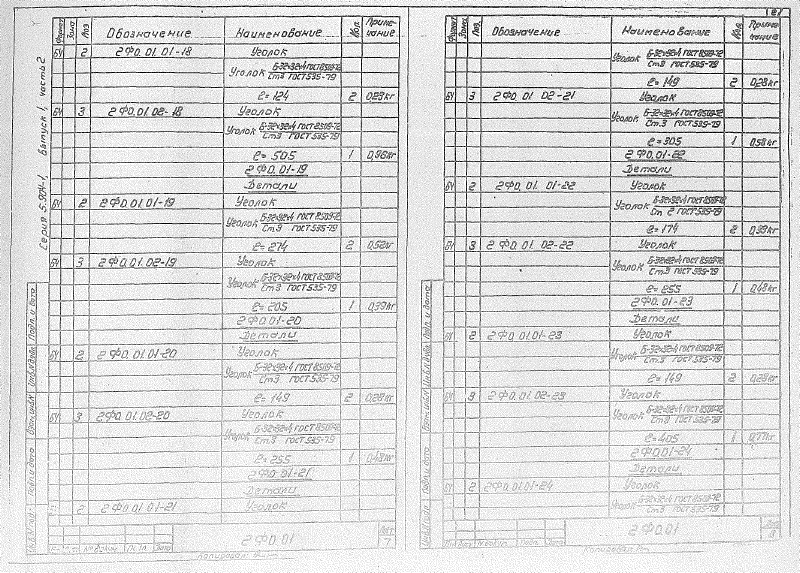 Серия 5.904-1, Выпуск 1, часть 2
Формат Зона Поз Обозначение Наименование Кол. Примечание
БЧ 2 2Ф0.01.01-18 Уголок
Уголок Б-32×32×4 ГОСТ 8509-72
Ст.3 ГОСТ 535-79
ℓ= 124 2 0,23кг
БЧ 3 2Ф0.01.02-18 Уголок
Уголок Б-32×32×4 ГОСТ 8509-72
Ст.3 ГОСТ 535-79
ℓ= 505 1 0,96кг
2Ф0.01-19
Детали
БЧ 2 2Ф0.01.01-19 Уголок
Уголок Б-32×32×4 ГОСТ 8509-72
Ст.3 ГОСТ 535-79
ℓ= 274 2 0,52кг
БЧ 3 2Ф0.01.02-19 Уголок
Уголок Б-32×32×4 ГОСТ 8509-72
Ст.3 ГОСТ 535-79
ℓ= 205 1 0,39кг
2Ф0.01-20
Детали
БЧ 2 2Ф0.01.01-20 Уголок
Уголок Б-32×32×4 ГОСТ 8509-72
Ст.3 ГОСТ 535-79
ℓ= 149 2 0,28кг
БЧ 3 2Ф0.01.02-20 Уголок
Уголок Б-32×32×4 ГОСТ 8509-72
Ст.3 ГОСТ 535-79
ℓ= 255 1 0,48кг
2Ф0.01-21
Детали
2 2Ф0.01.01-21 Уголок
2Ф0.01
Лист
7
Копировал
Формат Зона Поз Обозначение Наименование Кол. Примечание
Уголок Б-32×32×4 ГОСТ 8509-72
Ст.3 ГОСТ 535-79
ℓ= 149 2 0,28кг
БЧ 3 2Ф0.01.02-21 Уголок
Уголок Б-32×32×4 ГОСТ 8509-72
Ст.3 ГОСТ 535-79
ℓ= 305 1 0,58кг
2Ф0.01-22
Детали
БЧ 2 2Ф0.01.01-22 Уголок
Уголок Б-32×32×4 ГОСТ 8509-72
Ст 2 ГОСТ 535-79
ℓ= 174 2 0,33кг
БЧ 3 2Ф0.01.02-22 Уголок
Уголок Б-32×32×4 ГОСТ 8509-72
Ст.3 ГОСТ 535-79
ℓ= 255 1 0,48кг
2Ф0.01-23
Детали
БЧ 2 2Ф0.01.01-23 Уголок
Уголок Б-32×32×4 ГОСТ 8509-72
Ст.3 ГОСТ 535-79
ℓ= 149 2 0,28кг
БЧ 3 2Ф0.01.02-23 Уголок
Уголок Б-32×32×4 ГОСТ 8509-72
Ст.3 ГОСТ 535-79
ℓ= 405 1 0,77кг
2Ф0.01-24
Детали
БЧ 2 2Ф0.01.01-24 Уголок
Уголок Б-32×32×4 ГОСТ 8509-72
Ст.3 ГОСТ 535-79
2Ф0.01
8
Копировал